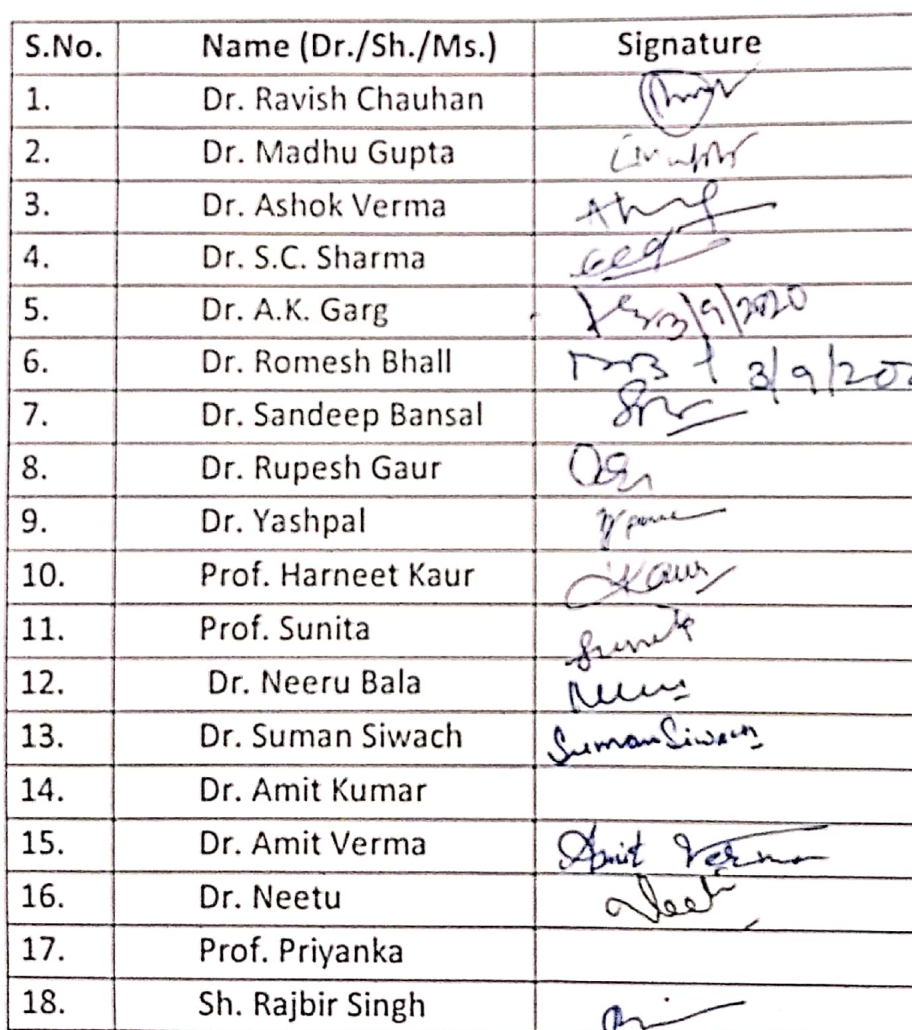 S.No. Name (Dr./Sh./Ms.) Signature
1. Dr. Ravish Chauhan
2. Dr. Madhu Gupta
3. Dr. Ashok Verma
4. Dr. S.C. Sharma
5. Dr. A.K. Garg 3/9/2020
6. Dr. Romesh Bhall 3/9/202
7. Dr. Sandeep Bansal
8. Dr. Rupesh Gaur
9. Dr. Yashpal
10. Prof. Harneet Kaur Kaur
11. Prof. Sunita Sunita
12. Dr. Neeru Bala
13. Dr. Suman Siwach Suman Siwach
14. Dr. Amit Kumar
15. Dr. Amit Verma Amit Verma
16. Dr. Neetu
17. Prof. Priyanka
18. Sh. Rajbir Singh